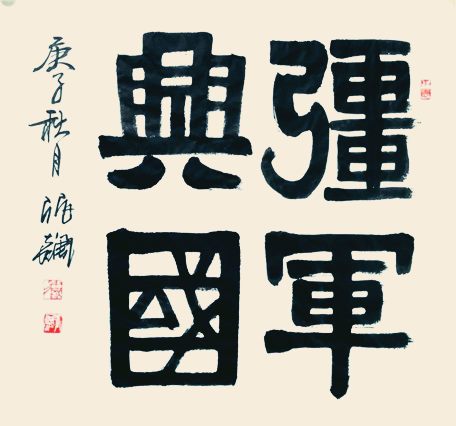 彊軍
興國
庚子秋月